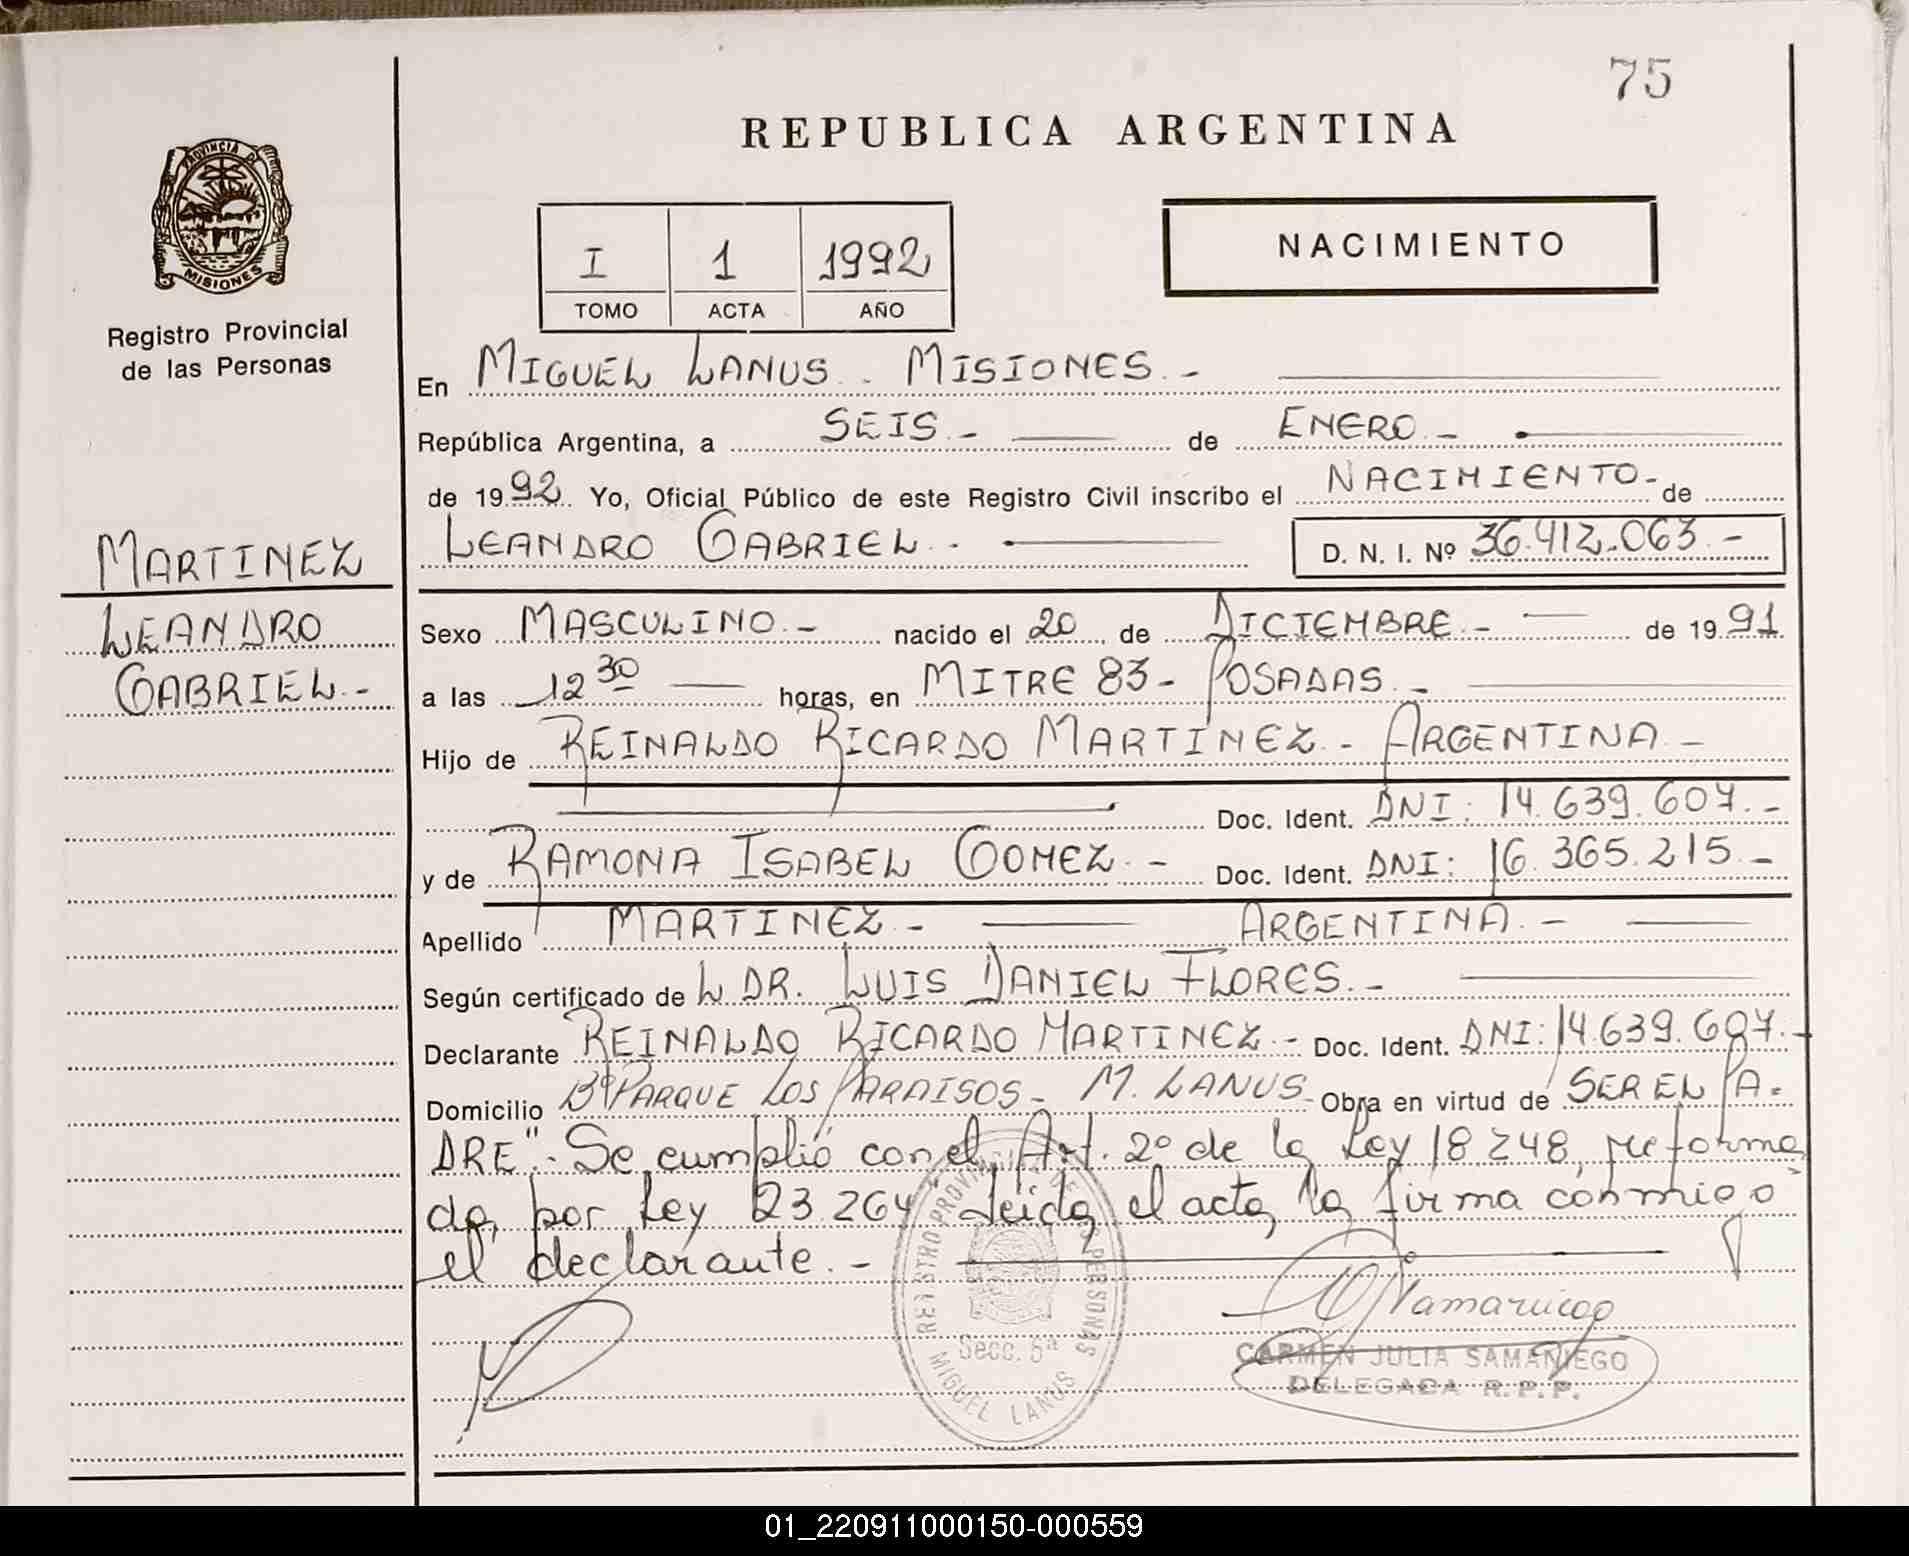 75
REPUBLICA ARGENTINA
PROVINCIA DE
MISIONES
Registro Provincial
de las Personas
I 1 1992
TOMO ACTA AÑO
NACIMIENTO
En MIGUEL LANUS - MISIONES.-
República Argentina, a SEIS.- de ENERO.-
de 1992. Yo, Oficial Público de este Registro Civil inscribo el NACIMIENTO- de
LEANDRO GABRIEL.- D. N. I. Nº 36.412.063.-
MARTINEZ
LEANDRO
GABRIEL.-
Sexo MASCULINO.- nacido el 20 de DICIEMBRE.- de 1991
a las 12 30 horas, en MITRE 83- POSADAS.-
Hijo de REINALDO RICARDO MARTINEZ.- ARGENTINA.-
Doc. Ident. DNI: 14.639.607.-
y de RAMONA ISABEL GOMEZ.- Doc. Ident. DNI: 16.365.215.-
Apellido MARTINEZ.- ARGENTINA.-
Según certificado de L DR. LUIS DANIEL FLORES.-
Declarante REINALDO RICARDO MARTINEZ.- Doc. Ident. DNI: 14.639.607.-
Domicilio Bº PARQUE LOS PARAISOS- M. LANUS- Obra en virtud de "SER EL PA-
DRE".- Se cumplió con el Art. 2º de la Ley 18.248, reforma
da por Ley 23.264" Leida el acta, la firma conmigo
el declarante.-
REGISTRO PROVINCIAL DE LAS PERSONAS
Secc. 5ª
MIGUEL LANUS
CARMEN JULIA SAMANIEGO
DELEGADA R.P.P.
01_220911000150-000559